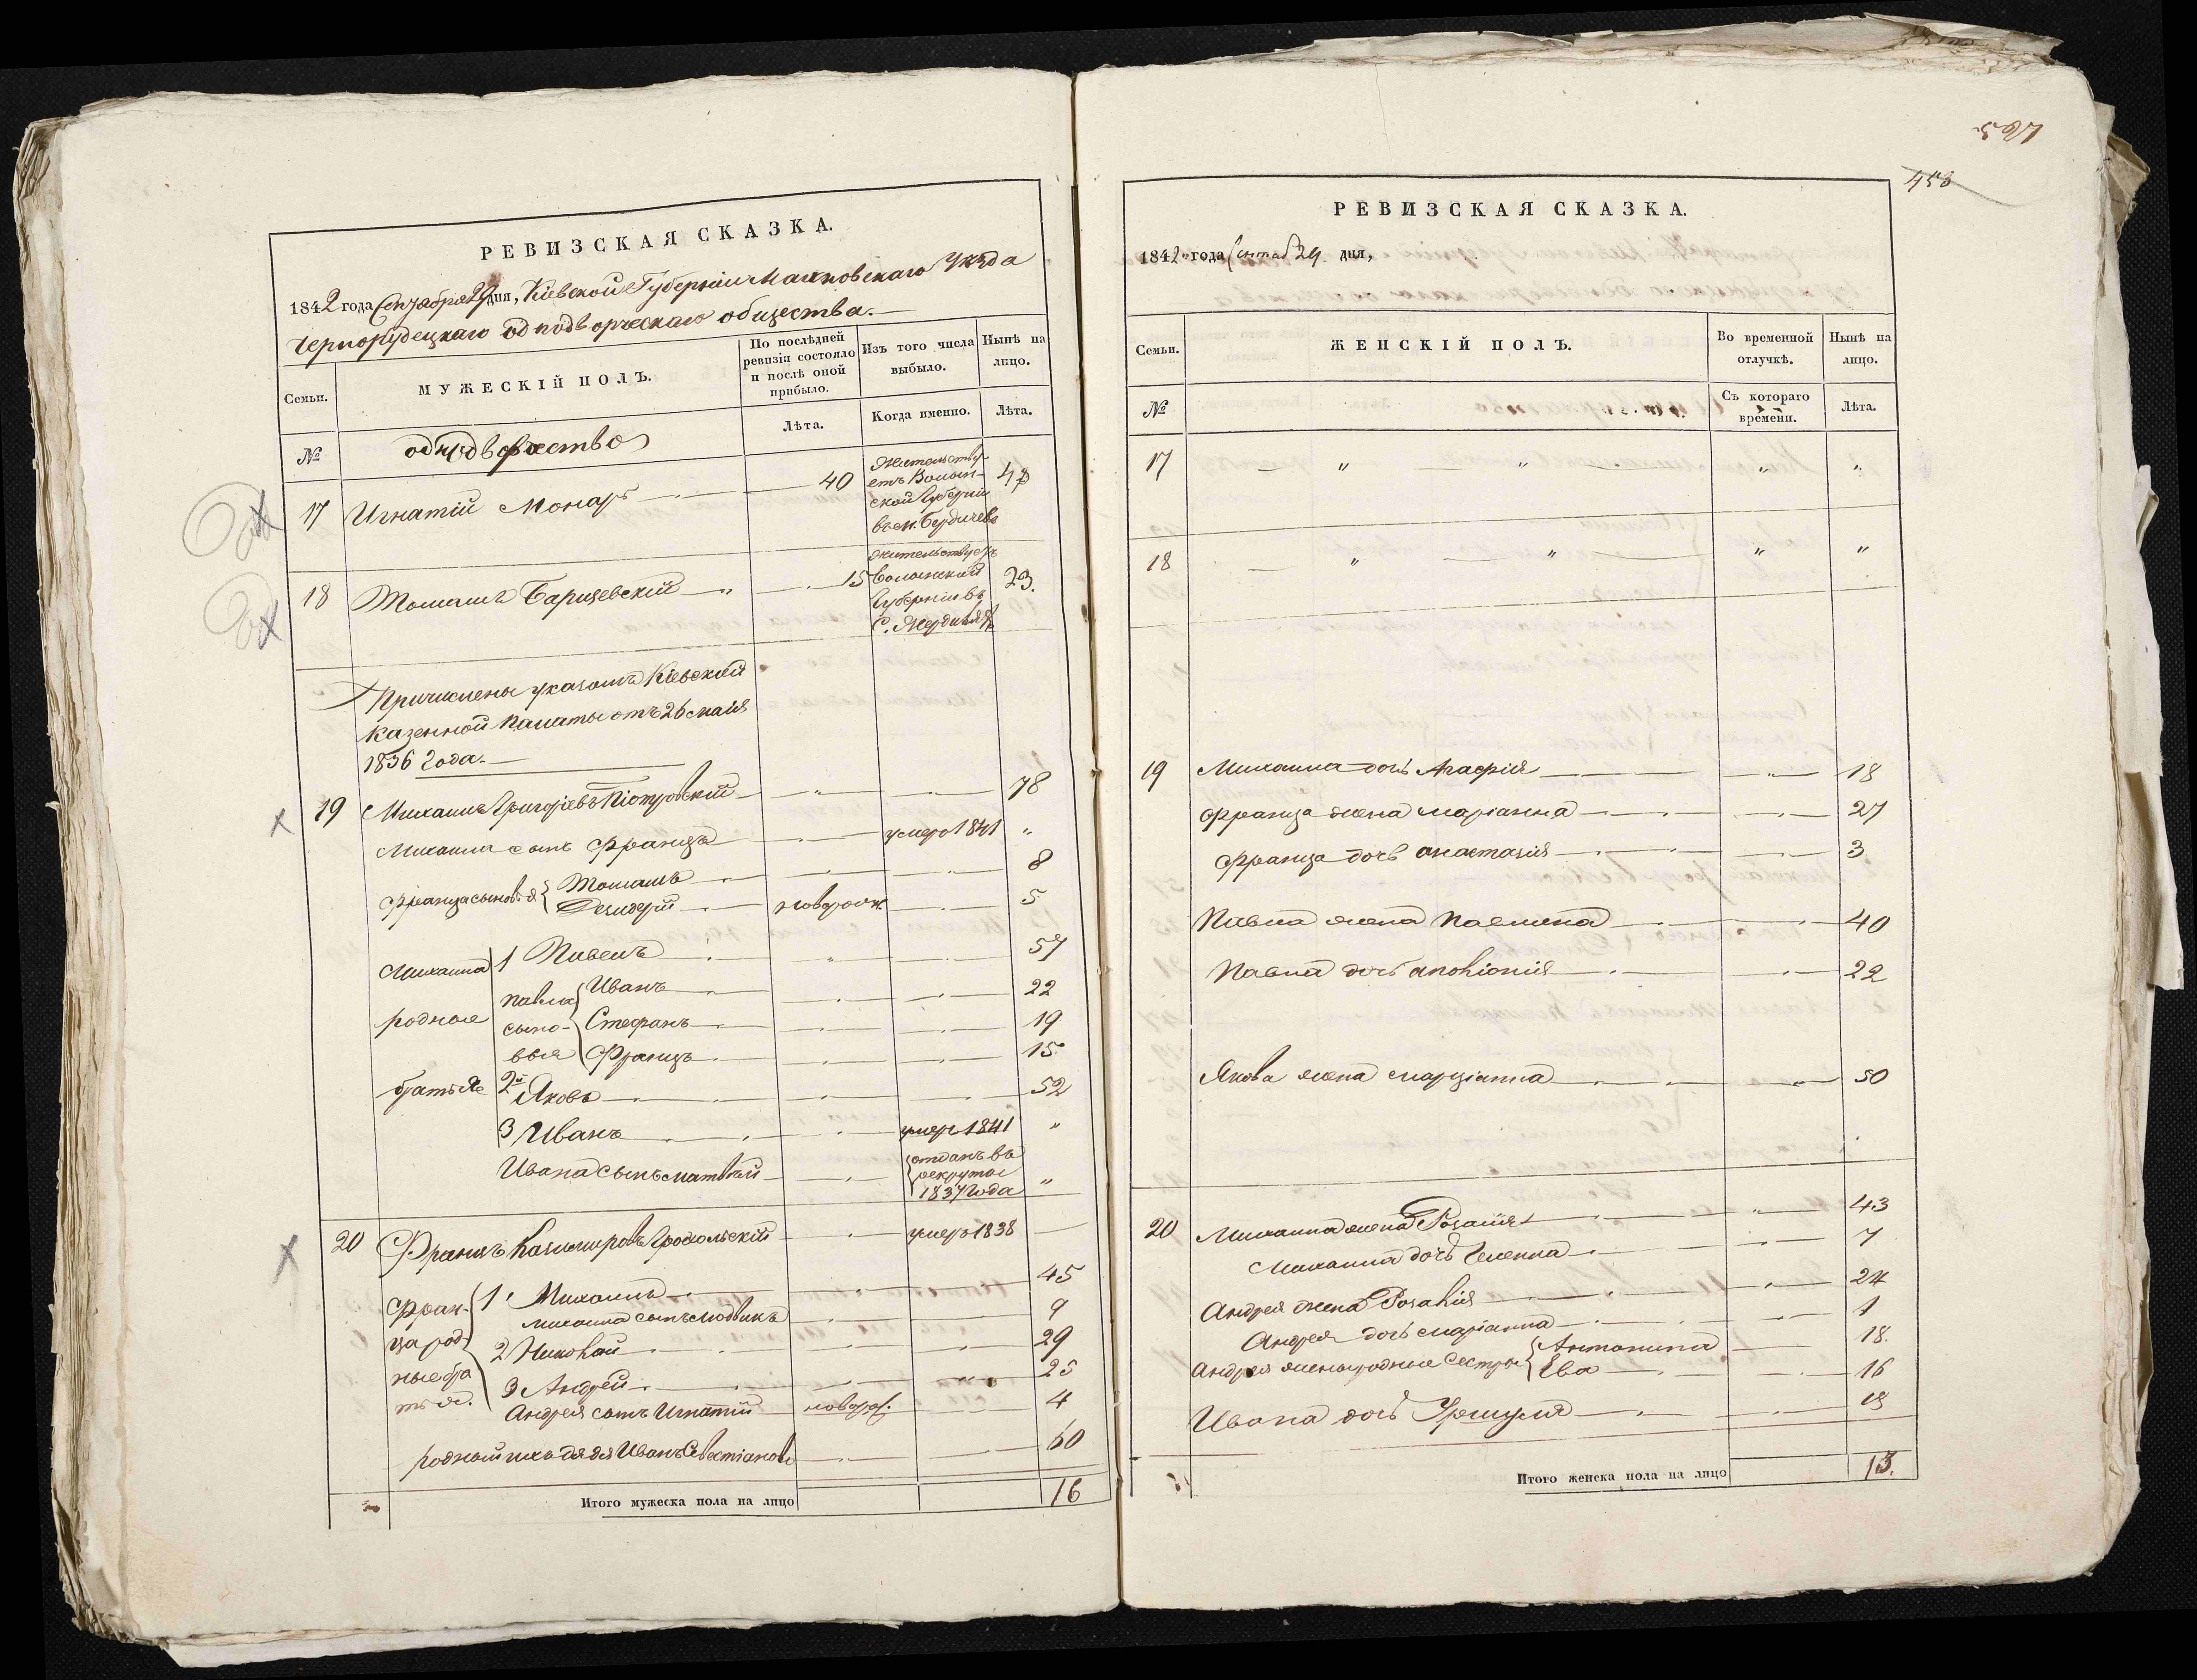 РЕВИЗСКАЯ СКАЗКА.
1842 года Сентября 29 дня, Кіевской Губерніи Махновскаго Уѣзда
Чернорудецкаго однодворческаго общества.
Семьи.
МУЖЕСКІЙ ПОЛЪ.
По послѣдней ревизіи состояло и послѣ оной прибыло.
Изъ того числа выбыло.
Нынѣ на лицо.
№
Лѣта.
Когда именно.
Лѣта.
однодворчество
17 Игнатій Монарь 40 Жительству-
етъ Волын-
ской Губерніи
въ м. Бердичевѣ
47
18 Томашъ Барщевскій 15 жительствуетъ
Волынской
Губерніи въ
С.
23.
Причислены указомъ Кіевской
Казенной Палаты отъ 26 маія
1836 года.
19 Михаилъ Григорьевъ Піотровскій 78
Михаила сынъ Францъ умеръ 1841 "
Франца сыновья { Томашъ 8
Дезидерій новорож. 5
Михаила 1 Павелъ 57
родные Павла сыно- { Иванъ 22
Стефанъ 19
вья Францъ 15
братья 2й Яковъ 52
3 Иванъ умеръ 1841 "
Ивана сынъ Матвѣй отданъ въ
рекруты
1837 года "
20 Францъ Казимировъ умеръ 1838
Фран- { 1. Михаилъ 45
Михаила сынъ Людвикъ 9
ца род- 2 Николай 29
ные бра 3 Андрей 25
тья. Андрея сынъ Игнатій новорож. 4
родный ихъ дядя Иванъ Севастіановъ 60
Итого мужеска пола на лицо 16
567
458
РЕВИЗСКАЯ СКАЗКА.
1842 года Сентяб 29 дня,
Семьи.
ЖЕНСКІЙ ПОЛЪ.
Во временной отлучкѣ.
Нынѣ на лицо.
№
Съ котораго времени.
Лѣта.
17 " " " "
18 " " " "
19 Михаила дочь Агафія 18
Франца жена Маріанна 27
Франца дочь Анастазія 3
Павла жена 40
Павла дочь 22
Якова жена 50
20 Михаила жена Розалія 43
Михаила дочь 7
Андрея жена Розалія 24
Андрея дочь Маріанна 1
Андрея жены родные сестры { Антонина 18.
Ева 16
Ивана дочь Уршуля 18
Итого женска пола на лицо 13.